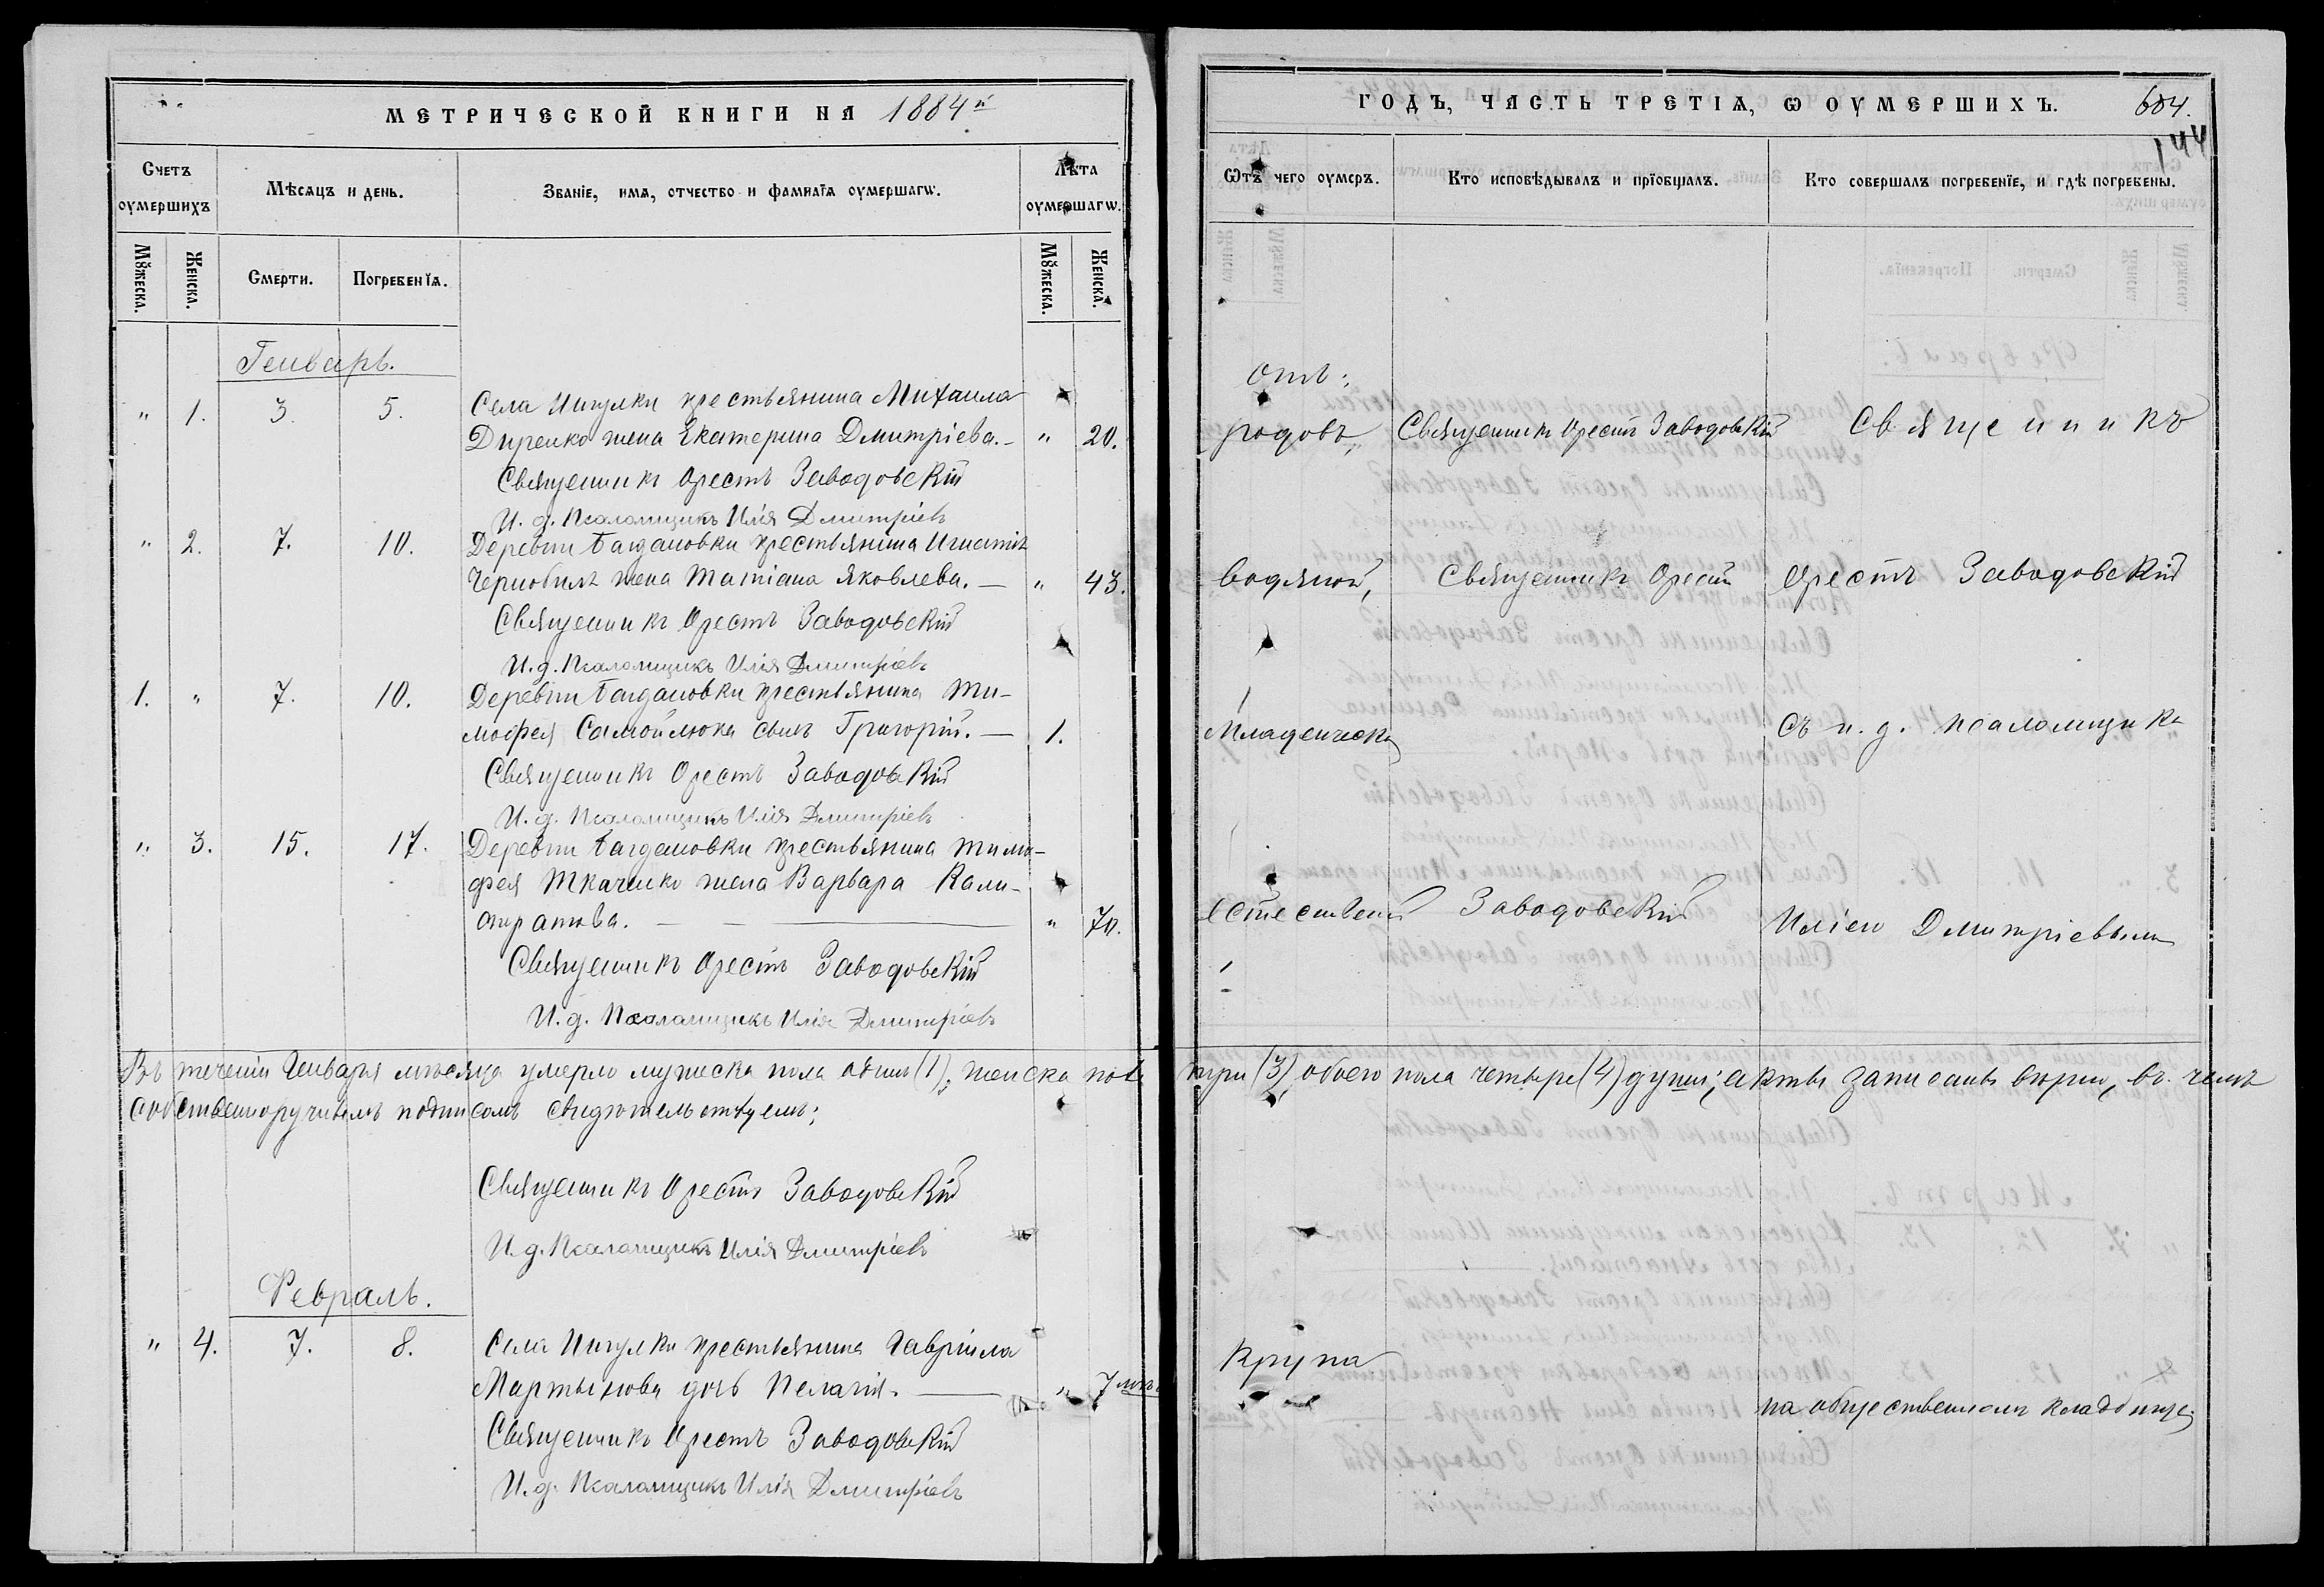 МЕТРИЧЕСКОЙ КНИГИ НА 1884й
Счетъ оумершихъ
Мѣсяцъ и день.
Званіе, имя, отчество и фамиліа оумершагѡ.
Лѣта оумершагѡ.
Мꙋжеска.
Женска.
Смерти.
Погребеніа.
Мꙋжеска.
Женска.
Генварь.
" 1. 3. 5. Села Ингулки крестьянина Михаила
Диренко жена Екатерина Дмитріева. — " 20.
Священникъ Орестъ Заводовскій
И. д. Псаломщикъ Илія Дмитріевъ
" 2. 7. 10. Деревни Багдановки крестьянина Игнатія
Чернобиля жена Татіана Яковлева. — " 43.
Священникъ Орестъ Заводовскій
И. д. Псаломщикъ Илія Дмитріевъ
1. " 7. 10. Деревни Багдановки крестьянина Ти-
мофея Самойлюка сынъ Григорій. — 1.
Священникъ Орестъ Заводовскій
И. д. Псаломщикъ Илія Дмитріевъ
" 3. 15. 17. Деревни Багдановки крестьянина Тимо-
фея Ткаченко жена Варвара Кали-
стратова. — — " 70.
Священникъ Орестъ Заводовскій
И. д. Псаломщикъ Илія Дмитріевъ
Въ теченіи Генваря мѣсяца умерло мужеска пола одинъ (1), женска пола
собственноручнымъ подписомъ свидѣтельствуемъ:
Священникъ Орестъ Заводовскій
И. д. Псаломщикъ Илія Дмитріевъ
Февраль.
" 4. 7. 8. Села Ингулки крестьянина Гавріила
Мартынова дочь Пелагія. — " 7 мѣс.
Священникъ Орестъ Заводовскій
И. д. Псаломщикъ Илія Дмитріевъ
ГОДЪ, ЧАСТЬ ТРЕТІА, Ѡ ОУМЕРШИХЪ.
684.
144
Ѿтъ чего оумеръ.
Кто исповѣдывалъ и пріобщалъ.
Кто совершалъ погребеніе, и гдѣ погребены.
отъ:
родовъ, Священникъ Орестъ Заводовскій Священникъ
водяной, Священникъ Орестъ Орестъ Заводовскій
Младенческ. съ и. д. псаломщика
естествен. Заводовскій Иліею Дмитріевымъ
три (3), обоего пола четыре (4) души; акты записаны вѣрно, въ чемъ
Крупа
на общественномъ кладбищѣ.